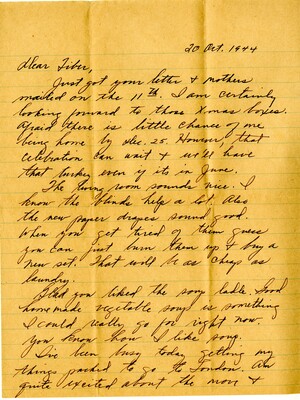 20 Oct. 1944
Dear Tiber,
Just got your letter & mothers
mailed on the 11th. I am certainly
looking forward to those Xmas boxes.
Afraid there is little chance of me
being home by Dec. 25. However, that
celebration can wait & we'll have
that turkey even if its in June.
The living room sounds nice. I
know the blinds help a lot. Also
the new paper drapes sound good.
When you get tired of them guess
you can just burn them up & buy a
new set. That will be as cheap as
laundry.
Glad you liked the soup ladle. Good
homemade vegetable soup is something
I could really go for right now.
You know how I like soup.
I've been busy today getting my
things packed to go to London. Am
quite excited about the move &